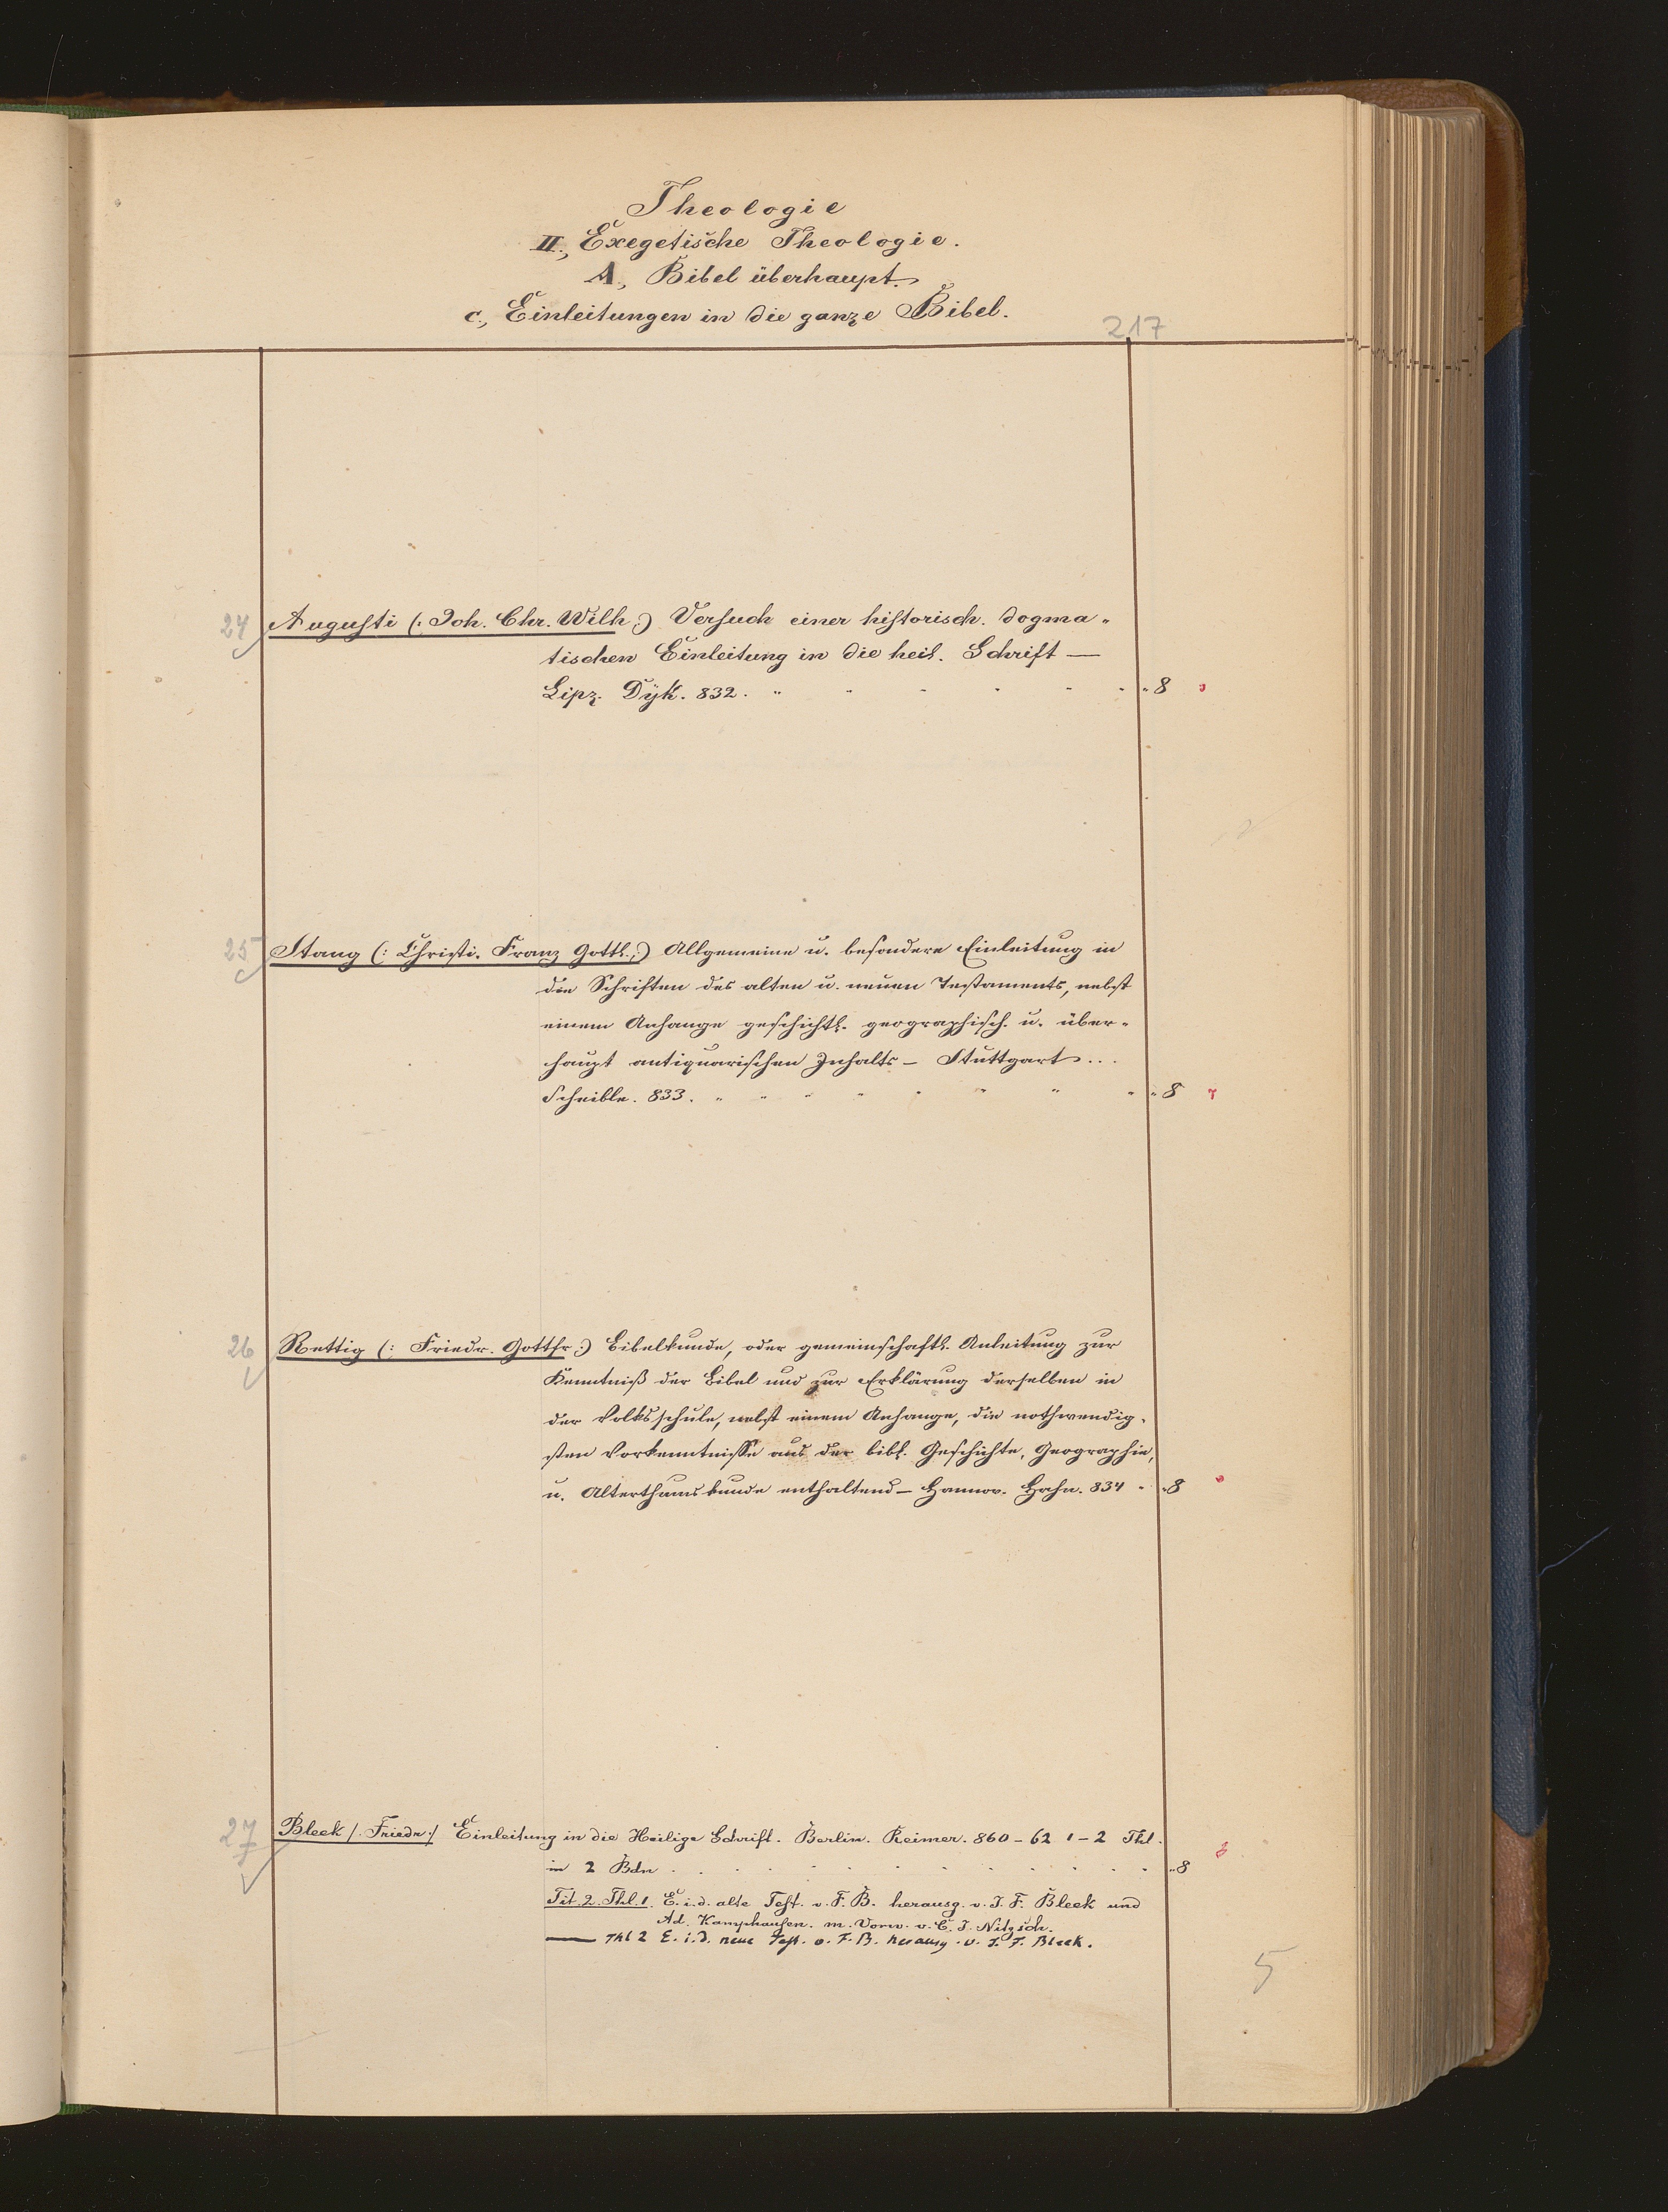 Theologie
II., Exegetische Theologie.
A., Bibel überhaupt.
c., Einleitungen in die ganze Bibel.
217
24 Augusti (: Joh. Chr. Wilh :) Versuch einer historisch. dogma„
tischen Einleitung in die heil. Schrift —
Lipz. Dÿk. 832. „ „ „ „ „ „ „ 8
25 Stang (: Christi. Franz Gottl. :) Allgemeine u. besondere Einleitung in
die Schriften des alten u. neuen Testaments, nebst
einem Anhange geschichtl. geographisch. u. über„
haupt antiquarischen Inhalts – Stuttgart ...
Scheible. 833. „ „ „ „ „ „ „ „ „ 8
26 Rettig (: Friedr. Gottfr :) Bibelkunde, oder gemeinschaftl. Anleitung zur
Kenntniß der Bibel und zur Erklärung derselben in
der Volksschule, nebst einem Anhange, die nothwendig„
sten Vorkenntnisse aus der bibl. Geschichte, Geographie,
u. Alterthumskunde enthaltend – Hannov. Hahn. 834 „ „ 8
27 Bleek /: Friedr :/ Einleitung in die Heilige Schrift. Berlin. Reimer. 860 – 62 1 – 2 Thl.
in 2 Bdn . . . . . . . . . . . „ 8
Tit. 2. Thl. 1. E. i. d. alte Test. v. F. B. herausg. v. J. F. Bleek und
Ad. Kamphausen. m. Vorw. v. C. J. Nitzsch.
— Thl 2 E. i. d. neue Test. v. F. B. herausg. v. J. F. Bleek.
5